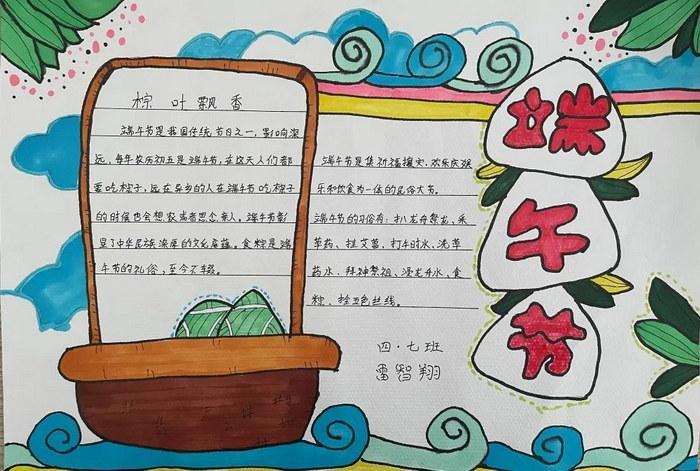 粽叶飘香
端午节是我国传统节日之一,影响深
远,每年农历初五是端午节,在这天人们都
要吃粽子,远在异乡的人在端午节吃粽子
的时候也会想家或者思念亲人。端午节彰
显了中华民族深厚的文化底蕴。食粽是端
午节的礼俗,至今不辍。
端午节是集祈福攘灾、欢乐庆娱
乐和饮食为一体的民俗大节。
端午节的习俗有:扒龙舟祭龙,采
草药、挂艾蒿、打午时水、洗草
药水、拜神祭祖、浸龙舟水、食
粽、拴五色丝线。
四·七班
雷智翔
端
午
节